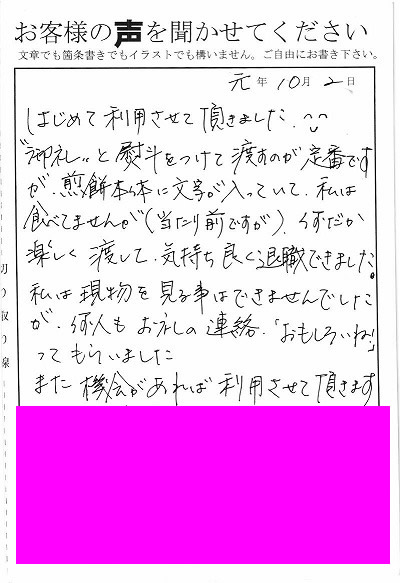 お客様の声を聞かせてください
文章でも箇条書きでもイラストでも構いません。ご自由にお書き下さい。
元年10月2日
はじめて利用させて頂きました。
"御礼"と熨斗をつけて渡すのが定番です
が、煎餅本体に文字が入っていて、私は
食べてませんが(当たり前ですが)、
楽しく渡して、気持ち良く退職できました。
私は現物を見る事はできませんでした
が、何人もお礼の連絡、「おもしろいね!」
ってもらいました
また機会があれば利用させて頂きます
切り取り線